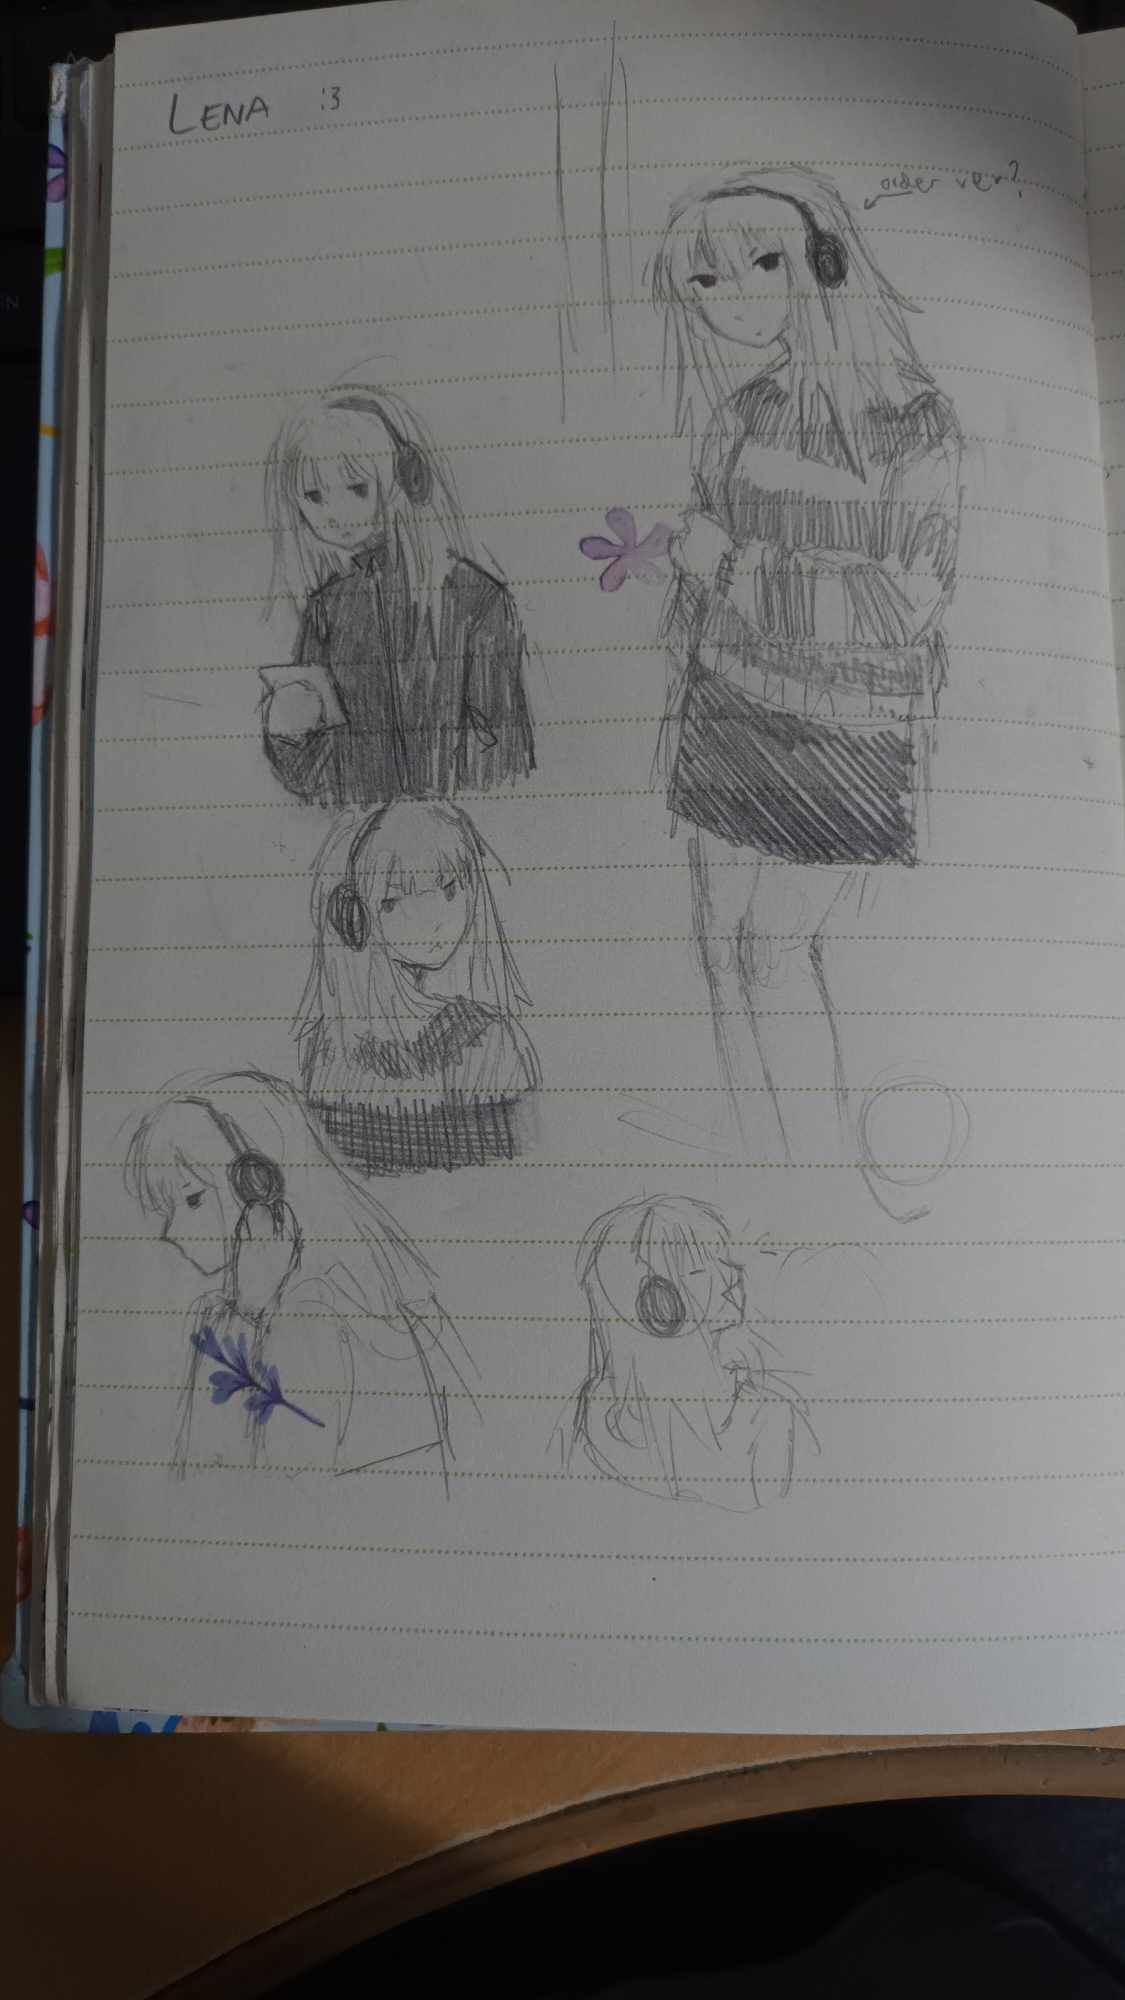 LENA :3
order ver?